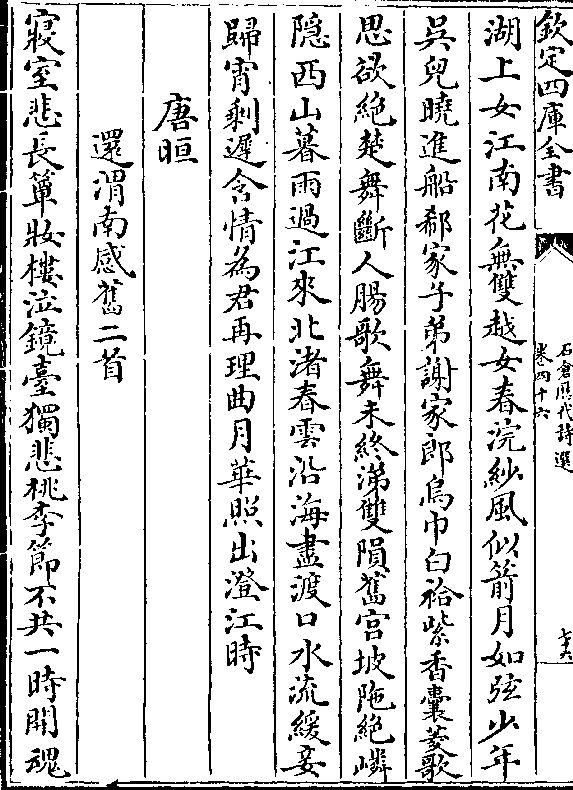 欽定四庫全書
石倉歷代詩選
卷四十六
七六
湖上女江南花無雙越女春浣紗風似箭月如弦少年
吳兒曉進船郗家子弟謝家郎烏巾白袷紫香囊菱歌
思欲絕楚舞斷人腸歌舞未終涕雙隕舊宮坡陁絕嶙
隱西山暮雨過江來北渚春雲沿海盡渡口水流緩妾
歸宵剩遲含情為君再理曲月華照出澄江時
唐晅
還渭南感舊二首
寢室悲長簟妝樓泣鏡臺獨悲桃李節不共一時開魂